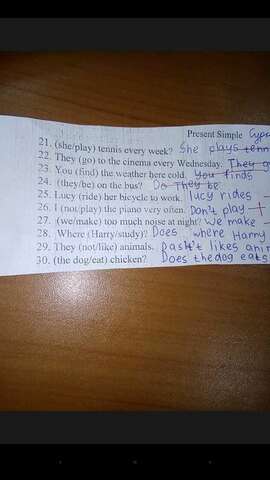 Present Simple
21. (she/play) tennis every week? She plays
22. They (go) to the cinema every Wednesday. They
23. You (find) the weather here cold. You finds
24. (they/be) on the bus? Do They be
25. Lucy (ride) her bicycle to work. lucy rides
26. I (not/play) the piano very often. Don't play
27. (we/make) too much noise at night? We make
28. Where (Harry/study)? Does where Harry
29. They (not/like) animals. likes
30. (the dog/eat) chicken? Does the dog eats